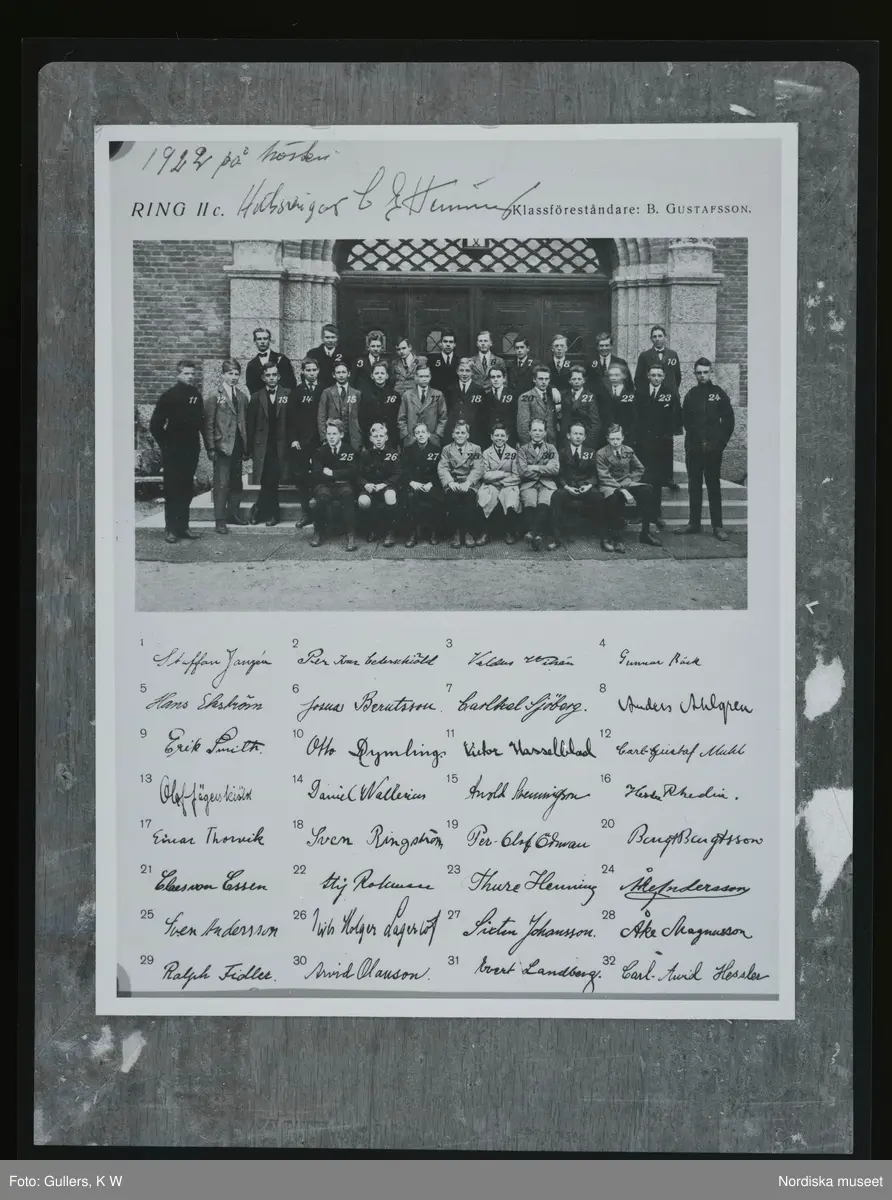 1922 på hösten
RING II c. C Klassföreståndare: B. GUSTAFSSON.
1 2 3 4 5 6 7 8 9 10
11 12 13 14 15 16 17 18 19 20 21 22 23 24
25 26 27 28 29 30 31
1 Staffan 2 Per Ivar Cederskiöld 3 Valdus 4 Gunnar Bäck
5 Hans Ekström 6 Josua Berntsson. 7 Sjöberg. 8 Anders Ahlgren
9 Erik Smith. 10 Otto Rymling. 11 Victor Hasselblad 12 Carl-Gustaf
13 Olof Jägerskiöld 14 Daniel Wallerius 15 Arnold 16 Rhedin.
17 Einar Thorvik 18 Sven Ringström 19 Per-Olof Ödman 20 Bengt Bengtsson
21 Claes von Essen 22 Stig 23 Thure Henning 24 Åke Andersson
25 Sven Andersson 26 Nils Holger Lagerlöf 27 Sixten Johansson. 28 Åke Magnusson
29 Ralph Fidler. 30 Arvid Olauson. 31 Evert Landberg. 32 Carl-Arvid Hessler
Foto: Gullers, K W Nordiska museet